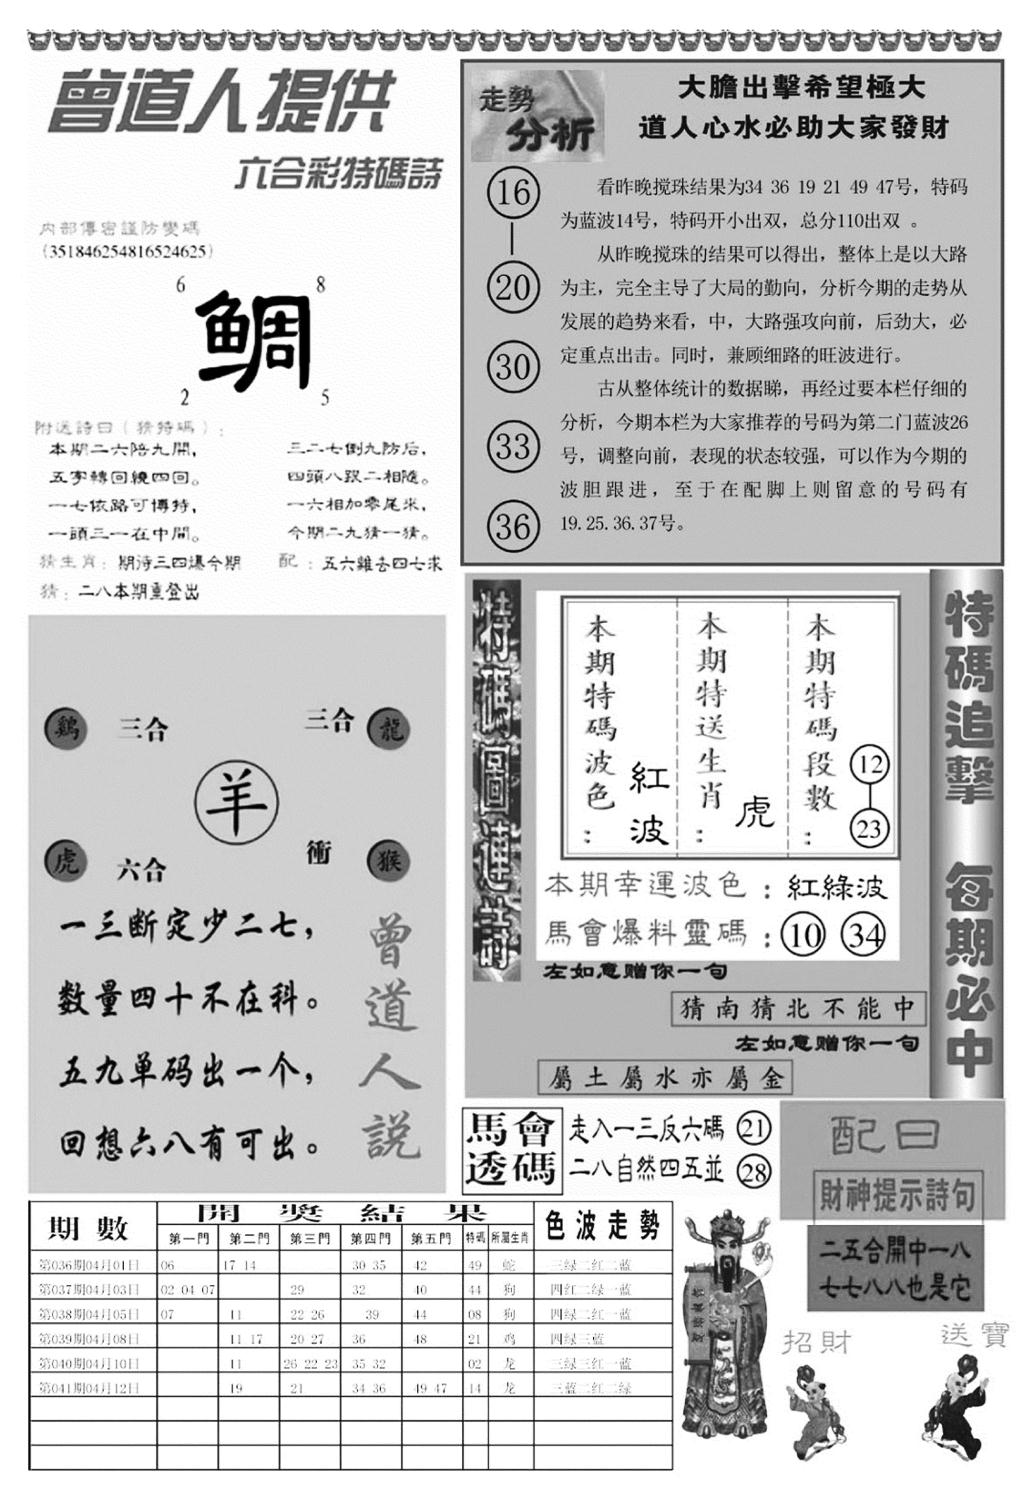 曾道人提供
六合彩特碼詩
内部傳密謹防變碼
(351846254816524625)
6 8
鲷
2 5
附送詩曰（猜特碼）:
本期二六陪九開,
五字轉回繞四回。
一七依路可博特,
一頭三一在中間。
三二七倒九防后,
四頭八跟二相隨。
一六相加零尾来,
今期二九猜一猜。
猜生肖: 期待三四爆今期
配: 五六雞去四七求
猜: 二八本期重登出
走勢
分析
大膽出擊希望極大
道人心水必助大家發財
16
20
30
33
36
看昨晚搅珠结果为34 36 19 21 49 47号，特码
为蓝波14号，特码开小出双，总分110出双 。
从昨晚搅珠的结果可以得出，整体上是以大路
为主，完全主导了大局的勤向，分析今期的走势从
发展的趋势来看，中，大路强攻向前，后劲大，必
定重点出击。同时，兼顾细路的旺波进行。
古从整体统计的数据睇，再经过要本栏仔细的
分析，今期本栏为大家推荐的号码为第二门蓝波26
号，调整向前，表现的状态较强，可以作为今期的
波胆跟进，至于在配脚上则留意的号码有
19.25.36.37号。
鷄 三合
三合 龍
羊
虎 六合
衝 猴
一三断定少二七，
数量四十不在科。
五九单码出一个，
回想六八有可出。
曾道人説
特碼圖連詩
本期特碼波色:
紅波
本期特送生肖:
虎
本期特碼段數:
12
23
本期幸運波色：紅綠波
馬會爆料靈碼：10 34
左如意赠你一句
猜南猜北不能中
左如意赠你一句
屬土屬水亦屬金
特碼追擊 每期必中
馬會透碼
走入一三反六碼 21
二八自然四五並 28
配曰
財神提示詩句
二五合開中一八
七七八八也是它
招財
送寶
期數 開獎結果 色波走勢
第一門 第二門 第三門 第四門 第五門 特碼 所屬生肖
第036期04月01日 06 17 14 30 35 42 49 蛇 三绿二红二蓝
第037期04月03日 02 04 07 29 32 40 44 狗 四红二绿一蓝
第038期04月05日 07 11 22 26 39 44 08 狗 四绿二红一蓝
第039期04月08日 11 17 20 27 36 48 21 鸡 四绿三蓝
第040期04月10日 11 26 22 23 35 32 02 龙 三绿三红一蓝
第041期04月12日 19 21 34 36 49 47 14 龙 三蓝二红二绿